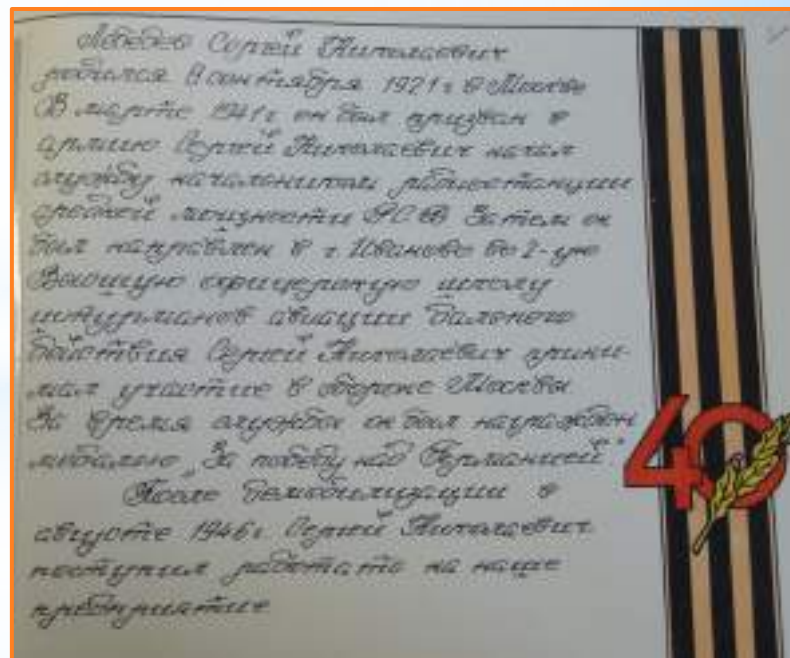 Лебедев Сергей Николаевич
родился 8 сентября 1921 г в Москве
В марте 1941 г он был призван в
армию Сергей Николаевич начал
службу начальником радиостанции
средней мощности РСБ Затем он
был направлен в г Иваново во 2-ую
Высшую офицерскую школу
штурманов авиации дальнего
действия Сергей Николаевич прини-
мал участие в обороне Москвы
За время службы он был награжден
медалью "За победу над Германией"
После демобилизации в
августе 1946 г. Сергей Николаевич
поступил работать на наше
предприятие
40